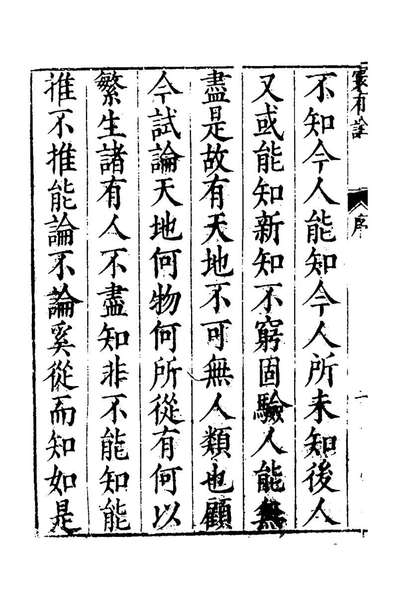 寰有詮
序
不知今人能知今人所未知後人
又或能知新知不窮固驗人能無
盡是故有天地不可無人類也顧
今試論天地何物何所從有何以
繁生諸有人不盡知非不能知能
推不推能論不論奚從而知如是